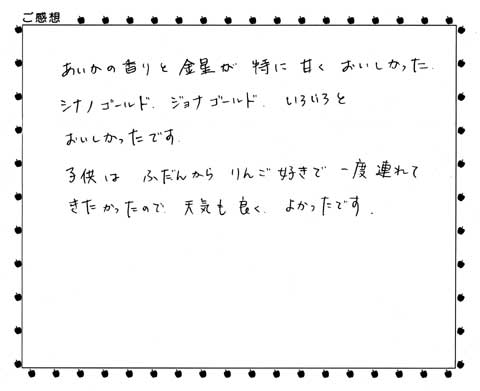 ご感想
あいかの香りと 金星が 特に 甘く おいしかった.
シナノゴールド. ジョナゴールド. いろいろと
おいしかったです.
子供は ふだんから りんご好きで 一度連れて
きたかったので. 天気も 良く. よかったです.